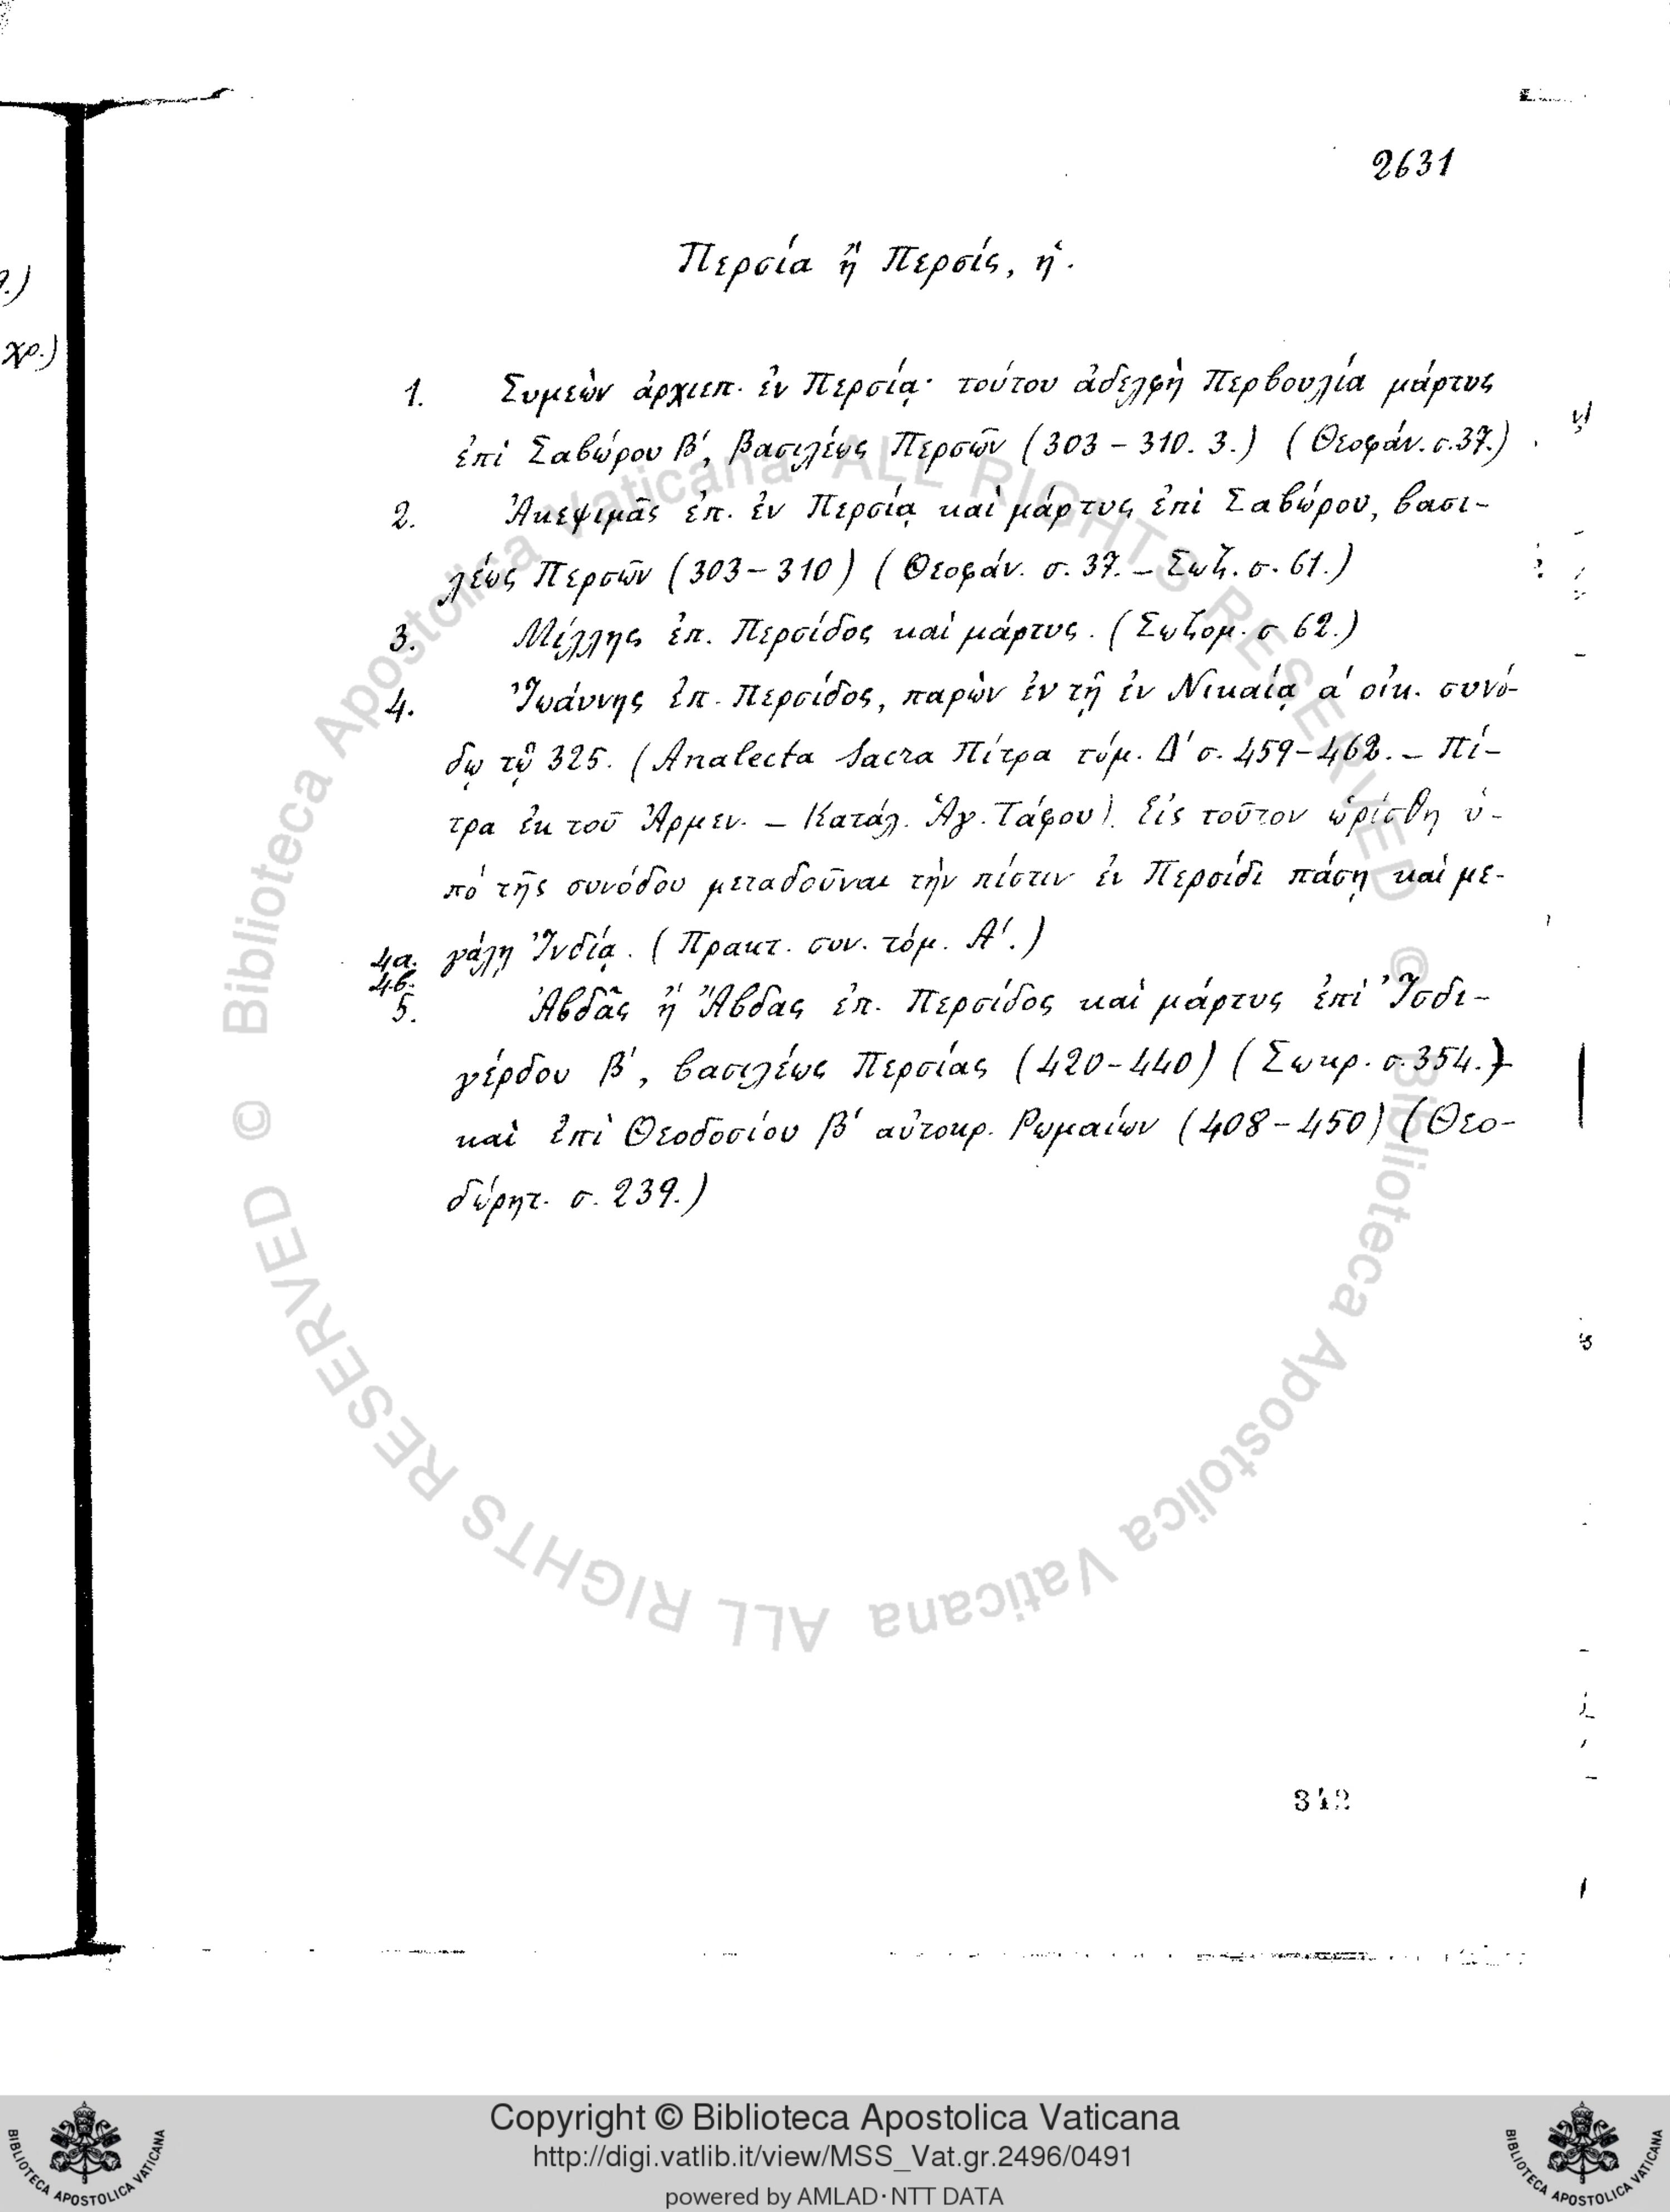 2631
Περσία ἢ Περσίς, ἡ.
χρ.)
1. Συμεὼν ἀρχιεπ. ἐν Περσίᾳ· τούτου ἀδελφὴ Περβουλία μάρτυς
ἐπὶ Σαβώρου β΄, βασιλέως Περσῶν (303 – 310. 3.) (Θεοφάν. σ. 37.)
2. Ἀκεψιμᾶς ἐπ. ἐν Περσίᾳ καὶ μάρτυς ἐπὶ Σαβώρου, βασι-
λέως Περσῶν (303 – 310) (Θεοφάν. σ. 37. – Σωζ. σ. 61.)
3. Μίλλης ἐπ. Περσίδος καὶ μάρτυς. (Σωζομ. σ 62.)
4. Ἰωάννης ἐπ. Περσίδος, παρὼν ἐν τῇ ἐν Νικαίᾳ α΄ οἰκ. συνό-
δῳ τῷ 325. (Analecta Sacra Πίτρα τόμ. Δ΄ σ. 459–462. – Πί-
τρα ἐκ τοῦ Ἀρμεν. – Κατάλ. Ἁγ. Τάφου). Εἰς τοῦτον ὡρίσθη ὑ-
πὸ τῆς συνόδου μεταδοῦναι τὴν πίστιν ἐν Περσίδι πάσῃ καὶ με-
4α. γάλῃ Ἰνδίᾳ. (Πρακτ. συν. τόμ. Α΄.)
4β.
5. Ἀβδᾶς ἢ Ἄβδας ἐπ. Περσίδος καὶ μάρτυς ἐπὶ Ἰσδι-
γέρδου β΄, βασιλέως Περσίας (420–440) (Σωκρ. σ. 354.)
καὶ ἐπὶ Θεοδοσίου β΄ αὐτοκρ. Ρωμαίων (408–450) (Θεο-
δώρητ. σ. 239.)
342
© Biblioteca Apostolica Vaticana ALL RIGHTS RESERVED
© Biblioteca Apostolica Vaticana ALL RIGHTS RESERVED
BIBLIOTECA APOSTOLICA VATICANA
Copyright © Biblioteca Apostolica Vaticana
http://digi.vatlib.it/view/MSS_Vat.gr.2496/0491
powered by AMLAD·NTT DATA
BIBLIOTECA APOSTOLICA VATICANA